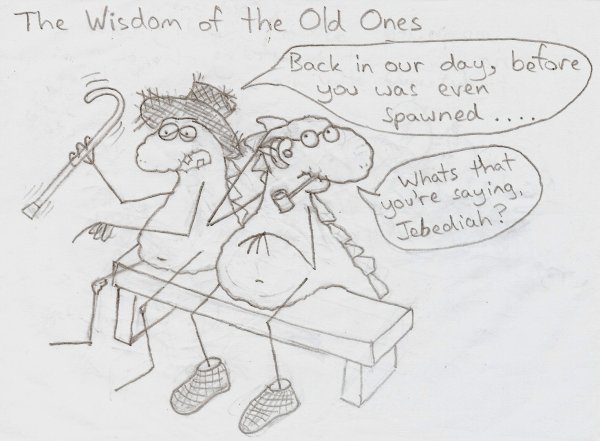 The Wisdom of the Old Ones
Back in our day, before
you was even
spawned ....
Whats that
you're saying,
Jebediah?